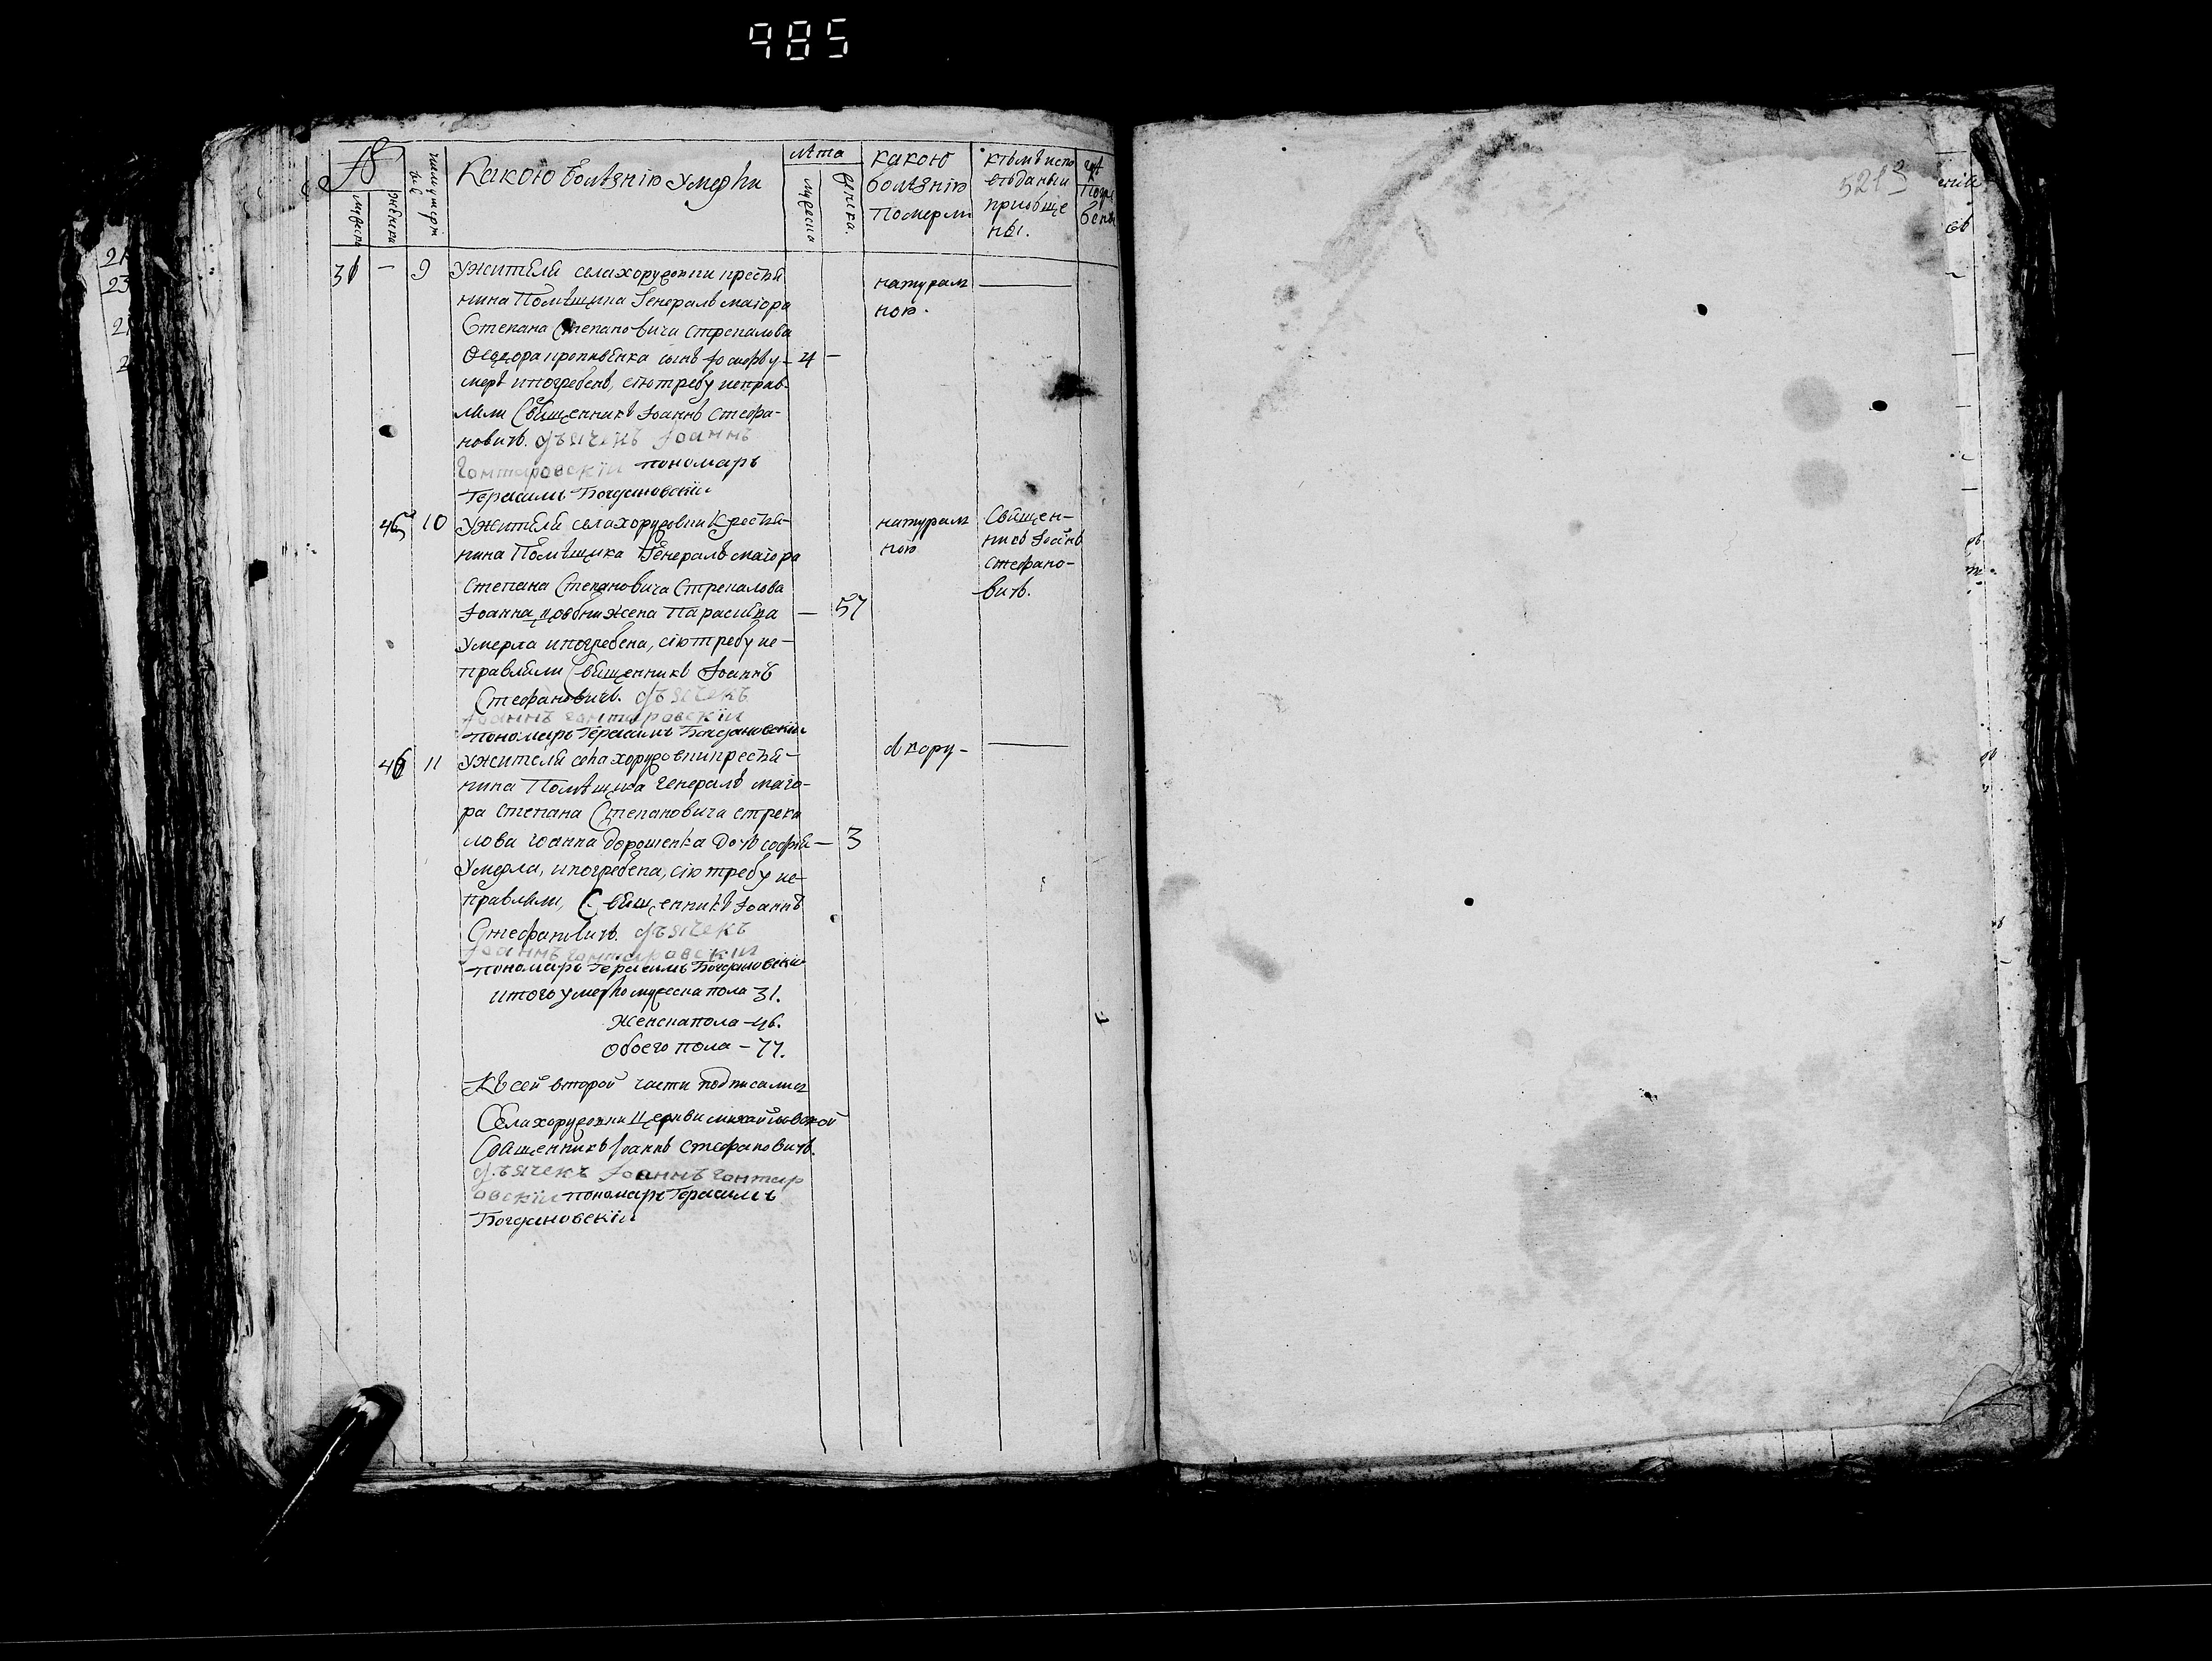 985
№
мужеска
женска
Какою болѣзнію умерли
лѣта
мужеска
женска.
какою
болѣзнію
померли
кѣмъ испо
вѣданы и
приобще
ны.
гдѣ
погре
бены
5213
31 — 9 У жителя села хоружовки крестья
нина Помѣщика Генералъ маіора
Степана Степановича Стрекалова
Ѳеодора сынъ у— 4 —
меръ и погребенъ, сію требу исправ
ляли Священникъ Іоаннъ Стефа-
новичъ. дьячекъ Іоаннъ
Гонтаровскій пономарь
Герасимъ Богдановскій
натурал
ною.
45 10 У жителя села хоружовки Крестья-
нина Помѣщика Генералъ маіора
Степана Степановича Стрекалова
Іоанна жена Параскева — 57
Умерла и погребена, сію требу ис-
правляли Священникъ Іоаннъ
Стефановичъ. дьячекъ
Іоаннъ Гонтаровскій
пономарь Герасимъ Богдановскій
натурал
ною
Священ-
никъ Іоаннъ
Стефано-
вичъ.
46 11 У жителя села хоружовки крестья-
нина Помѣщика Генералъ маіо-
ра Степана Степановича Стрека
лова Іоанна Дорошенка дочь софія — 3
Умерла, и погребена, сію требу ис-
правляли, Священникъ Іоаннъ
Стефановичъ. дьячекъ
Іоаннъ Гонтаровскій
пономарь Герасимъ Богдановскій
итого умерло мужеска пола 31.
Женска пола — 46.
Обоего пола — 77.
Къ сей второй части подписались
Села хоружовки Церкви михайловской
Священникъ Іоаннъ Стефановичъ.
дьячекъ Іоаннъ Гонтар
овскій пономарь Герасимъ
Богдановскій